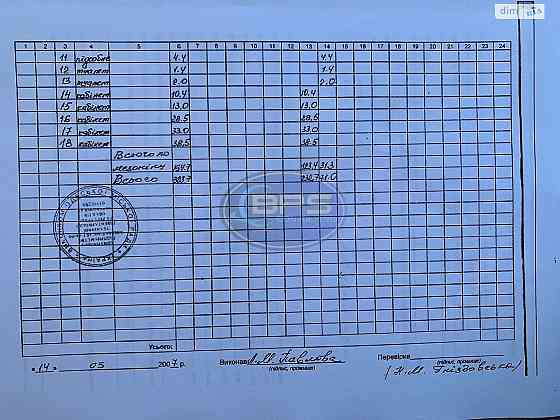 dim.ria
1 2 3 4 5 6 7 8 9 10 11 12 13 14 15 16 17 18 19 20 21 22 23 24
11 підсобне 4.4 4.4
12 туалет 1.4 1.4
13 туалет 2.0 2.0
14 кабінет 10.4 10.4
15 кабінет 13.0 13.0
16 кабінет 28.5 28.5
17 кабінет 33.0 33.0
18 кабінет 38.5 38.5
Всього по
мезоніну 154.7 123.4 31.3
Всього 303.7 71.0
BFS
Усього:
"14" 05 2007 р.
Виконав І.М. Павлова
(підпис, прізвище)
Перевірив
(підпис, прізвище)